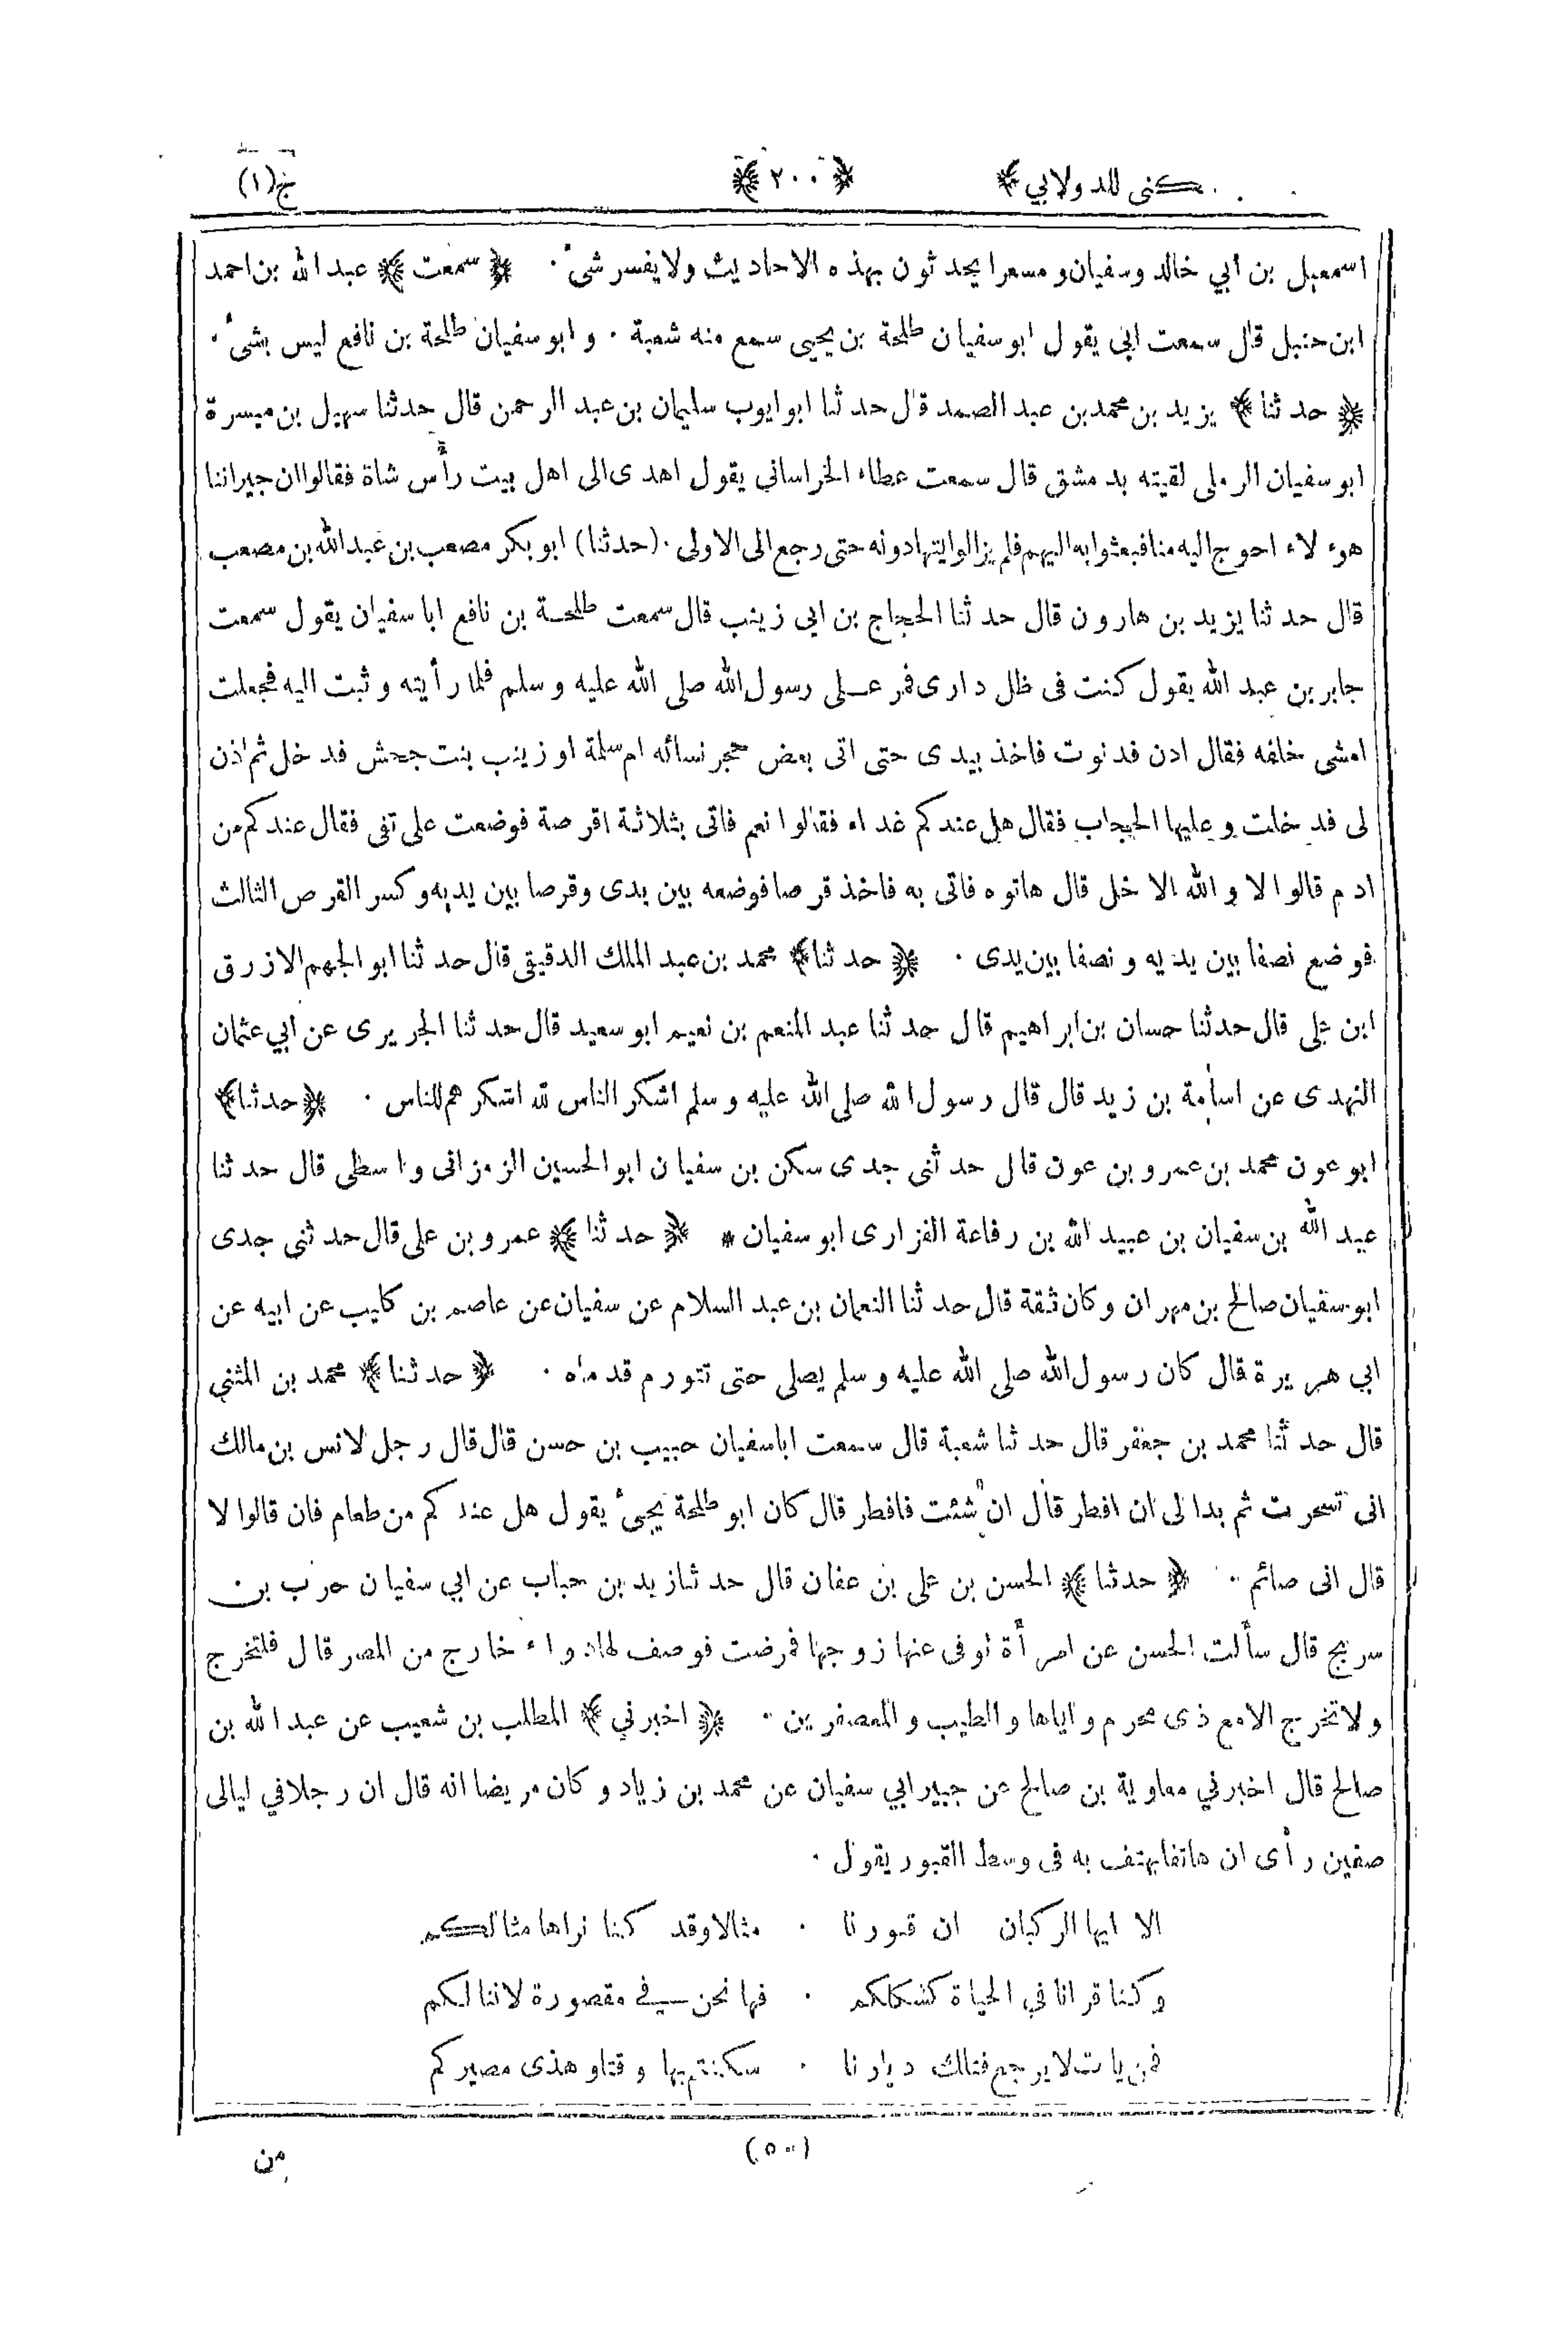 كنى للدولابي ﴿٢٠٠﴾ ج(١)
اسمعيل بن أبي خالد وسفيان ومسعرا يحدثون بهذه الاحاديث ولا يفسر شئ . ﴿ سمعت ﴾ عبد الله بن احمد
ابن حنبل قال سمعت ابى يقول ابو سفيان طلحة بن يحيى سمع منه شعبة . وابو سفيان طلحة بن نافع ليس بشئ .
﴿ حدثنا ﴾ يزيد بن محمد بن عبد الصمد قال حدثنا ابو ايوب سليمان بن عبد الرحمن قال حدثنا سهيل بن ميسرة
ابو سفيان الرملى لقيته بدمشق قال سمعت عطاء الخراسانى يقول اهدى الى اهل بيت رأس شاة فقالوا ان جيراننا
هوء لاء احوج اليه منا فبعثوا به اليهم فلم يزالوا يتهادونه حتى رجع الى الاولى . (حدثنا) ابو بكر مصعب بن عبد الله بن مصعب
قال حدثنا يزيد بن هارون قال حدثنا الحجاج بن ابى زينب قال سمعت طلحة بن نافع ابا سفيان يقول سمعت
جابر بن عبد الله يقول كنت فى ظل دارى فمر على رسول الله صلى الله عليه وسلم فلما رأيته وثبت اليه فجعلت
امشى خلفه فقال ادن فدنوت فاخذ بيدى حتى اتى بعض حجر نسائه ام سلمة او زينب بنت جحش فدخل ثم اذن
لى فدخلت وعليها الحجاب فقال هل عندكم غداء فقالوا نعم فاتى بثلاثة اقرصة فوضعت على تفى فقال عندكم من
ادم قالوا لا والله الا خل قال هاتوه فاتى به فاخذ قرصا فوضعه بين يدى وقرصا بين يديه وكسر القرص الثالث
فوضع نصفا بين يديه ونصفا بين يدى . ﴿ حدثنا ﴾ محمد بن عبد الملك الدقيقى قال حدثنا ابو الجهم الازرق
ابن على قال حدثنا حسان بن ابراهيم قال حدثنا عبد المنعم بن نعيم ابو سعيد قال حدثنا الجريرى عن ابي عثمان
النهدى عن اسامة بن زيد قال قال رسول الله صلى الله عليه وسلم اشكر الناس لله اشكرهم للناس . ﴿ حدثنا ﴾
ابو عون محمد بن عمرو بن عون قال حدثنى جدى سكن بن سفيان ابو الحسين الزمزانى واسطى قال حدثنا
عبد الله بن سفيان بن عبيد الله بن رفاعة الفزارى ابو سفيان * ﴿ حدثنا ﴾ عمرو بن على قال حدثنى جدى
ابو سفيان صالح بن مهران وكان ثقة قال حدثنا النعمان بن عبد السلام عن سفيان عن عاصم بن كليب عن ابيه عن
ابي هريرة قال كان رسول الله صلى الله عليه وسلم يصلى حتى تتورم قدماه . ﴿ حدثنا ﴾ محمد بن المثنى
قال حدثنا محمد بن جعفر قال حدثنا شعبة قال سمعت ابا سفيان حبيب بن حسن قال قال رجل لانس بن مالك
انى تسحرت ثم بدا لى ان افطر قال ان شئت فافطر قال كان ابو طلحة يجئ يقول هل عندكم من طعام فان قالوا لا
قال انى صائم . ﴿ حدثنا ﴾ الحسن بن على بن عفان قال حدثنا زيد بن حباب عن ابي سفيان حرب بن
سريج قال سألت الحسن عن امرأة توفى عنها زوجها فمرضت فوصف لها دواء خارج من المصر قال فلتخرج
ولا تخرج الا مع ذى محرم واياها والطيب والمعصفرين . ﴿ اخبرني ﴾ المطلب بن شعيب عن عبد الله بن
صالح قال اخبرني معاوية بن صالح عن جبير ابي سفيان عن محمد بن زياد وكان مريضا انه قال ان رجلا في ليالى
صفين رأى ان هاتفا يهتف به فى وسط القبور يقول .
الا ايها الركبان ان قبورنا . مثالا وقد كنا نراها مثالكم
وكنا قرانا في الحياة كشكلكم . فها نحن في مقصورة لاننا لكم
فمن يات لا يرجع فتلك ديارنا . سكنتم بها وقتا وهذى مصيركم
(٥٠)
من